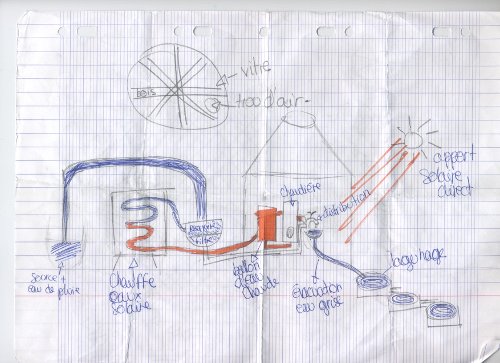 vitre
BOIS
trou d'air
apport
solaire
direct
chaudière
distribution
filtre
source +
eau de pluie
Chauffe
eaux
solaire
ballon
d'eau
chaude
évacuation
eau grise
lagunage